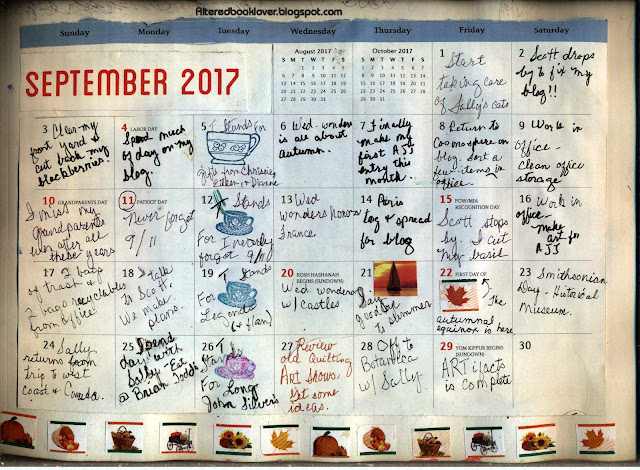 Alteredbooklover.blogspot.com
Sunday Monday Tuesday Wednesday Thursday Friday Saturday
SEPTEMBER 2017
August 2017
S M T W T F S
1 2 3 4 5
6 7 8 9 10 11 12
13 14 15 16 17 18 19
20 21 22 23 24 25 26
27 28 29 30 31
October 2017
S M T W T F S
1 2 3 4 5 6 7
8 9 10 11 12 13 14
15 16 17 18 19 20 21
22 23 24 25 26 27 28
29 30 31
1 Start
taking care
of Sally's cats
2 Scott drops
by to fix my
blog!!
3 Clear my
front yard &
cut back my
blackberries.
4 LABOR DAY
Spend much
of day on my
blog.
5 T Stands For
gifts from Chrissie,
Eileen & Dianne
6 Wed. wonders
is all about
autumn.
7 Finally
make my
first AJJ
entry this
month.
8 Return to
on
blog. Sort a
few items in
office.
9 Work in
office.
Clean office
storage
10 GRANDPARENTS DAY
I miss my
Grandparents
even after all
these years
11 PATRIOT DAY
Never forget
9/11
12 T Stands
For I nearly
forgot 9/11
13 Wed
wonders
France
14 Paris
tag & spread
for blog
15 POW/MIA
RECOGNITION DAY
Scott stops
by. I cut
my basil
16 Work in
office-
make
art for
AJJ
17 2 bags
of trash &
2 bags recyclables
from office
18 I talk
to Scott.
We make
plans.
19 T Stands
For
Legends
(& flan)
20 ROSH HASHANAH
BEGINS (SUNDOWN)
Wed wonders
w/ castles
21
Say
goodbye
to summer
22 FIRST DAY OF
The
autumnal
equinox is here.
23 Smithsonian
Day - Historical
Museum.
24 Sally
returns from
trip to west
coast & Canada.
25 Spend
day with
Sally - Eat
@ Brian Todd's
26 T
Stands
For Long
John Silver's
27 Review
old Quilting
Art Shows.
Get some
ideas.
28 Off to
Botanica
w/ Sally.
29 YOM KIPPUR BEGINS
(SUNDOWN)
ARTifacts
is complete
30